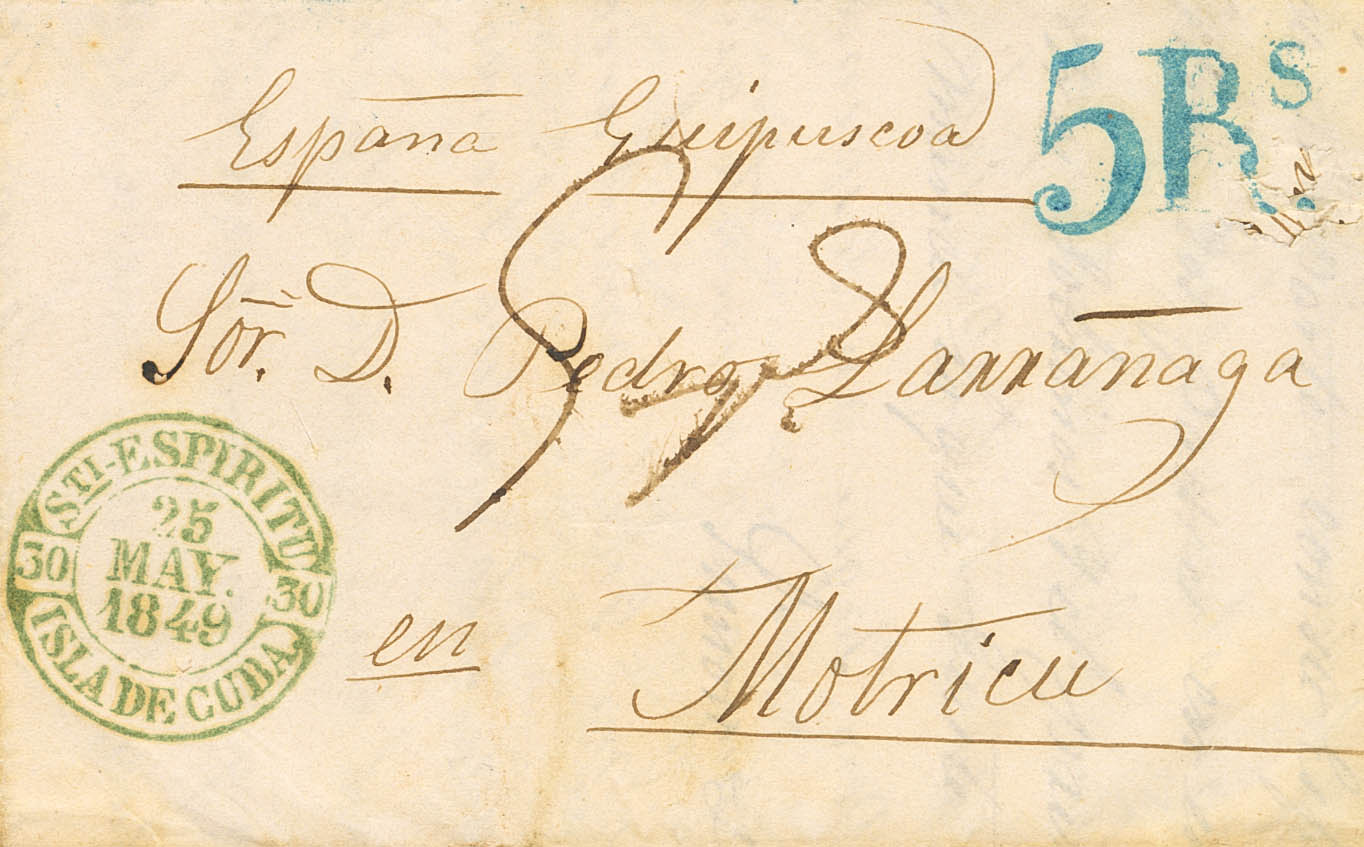 España Guipuscoa
5 Rs.
Sōr. D. Pedro Larrañaga
STI-ESPIRITU
25
MAY.
1849
30 30
ISLA DE CUBA
en
Motricu